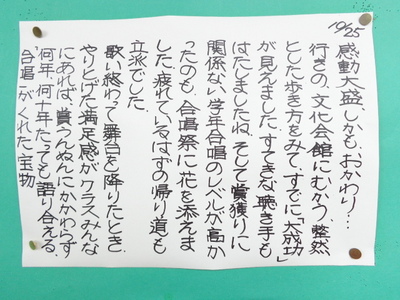 10/25
感動大盛、しかも、おかわり…。
行きの、文化会館にむかう、整然
とした歩き方をみて、すでに「大成功」
が見えました。すてきな聴き手も
はたしましたね。そして賞獲りに
関係ない、学年合唱のレベルが高か
ったのも、合唱祭に花を添えま
した。疲れているはずの帰り道も
立派でした。
歌い終わって舞台を降りたとき、
やりとげた満足感がクラスみんな
にあれば、賞うんぬんにかかわらず
何年、何十年たっても語り合える、
“合唱”がくれた“宝物”